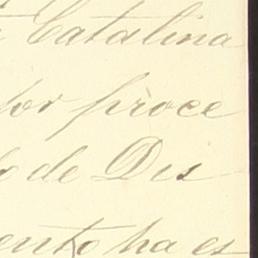 Catalina
tor proce
o de Dis
ento ha es